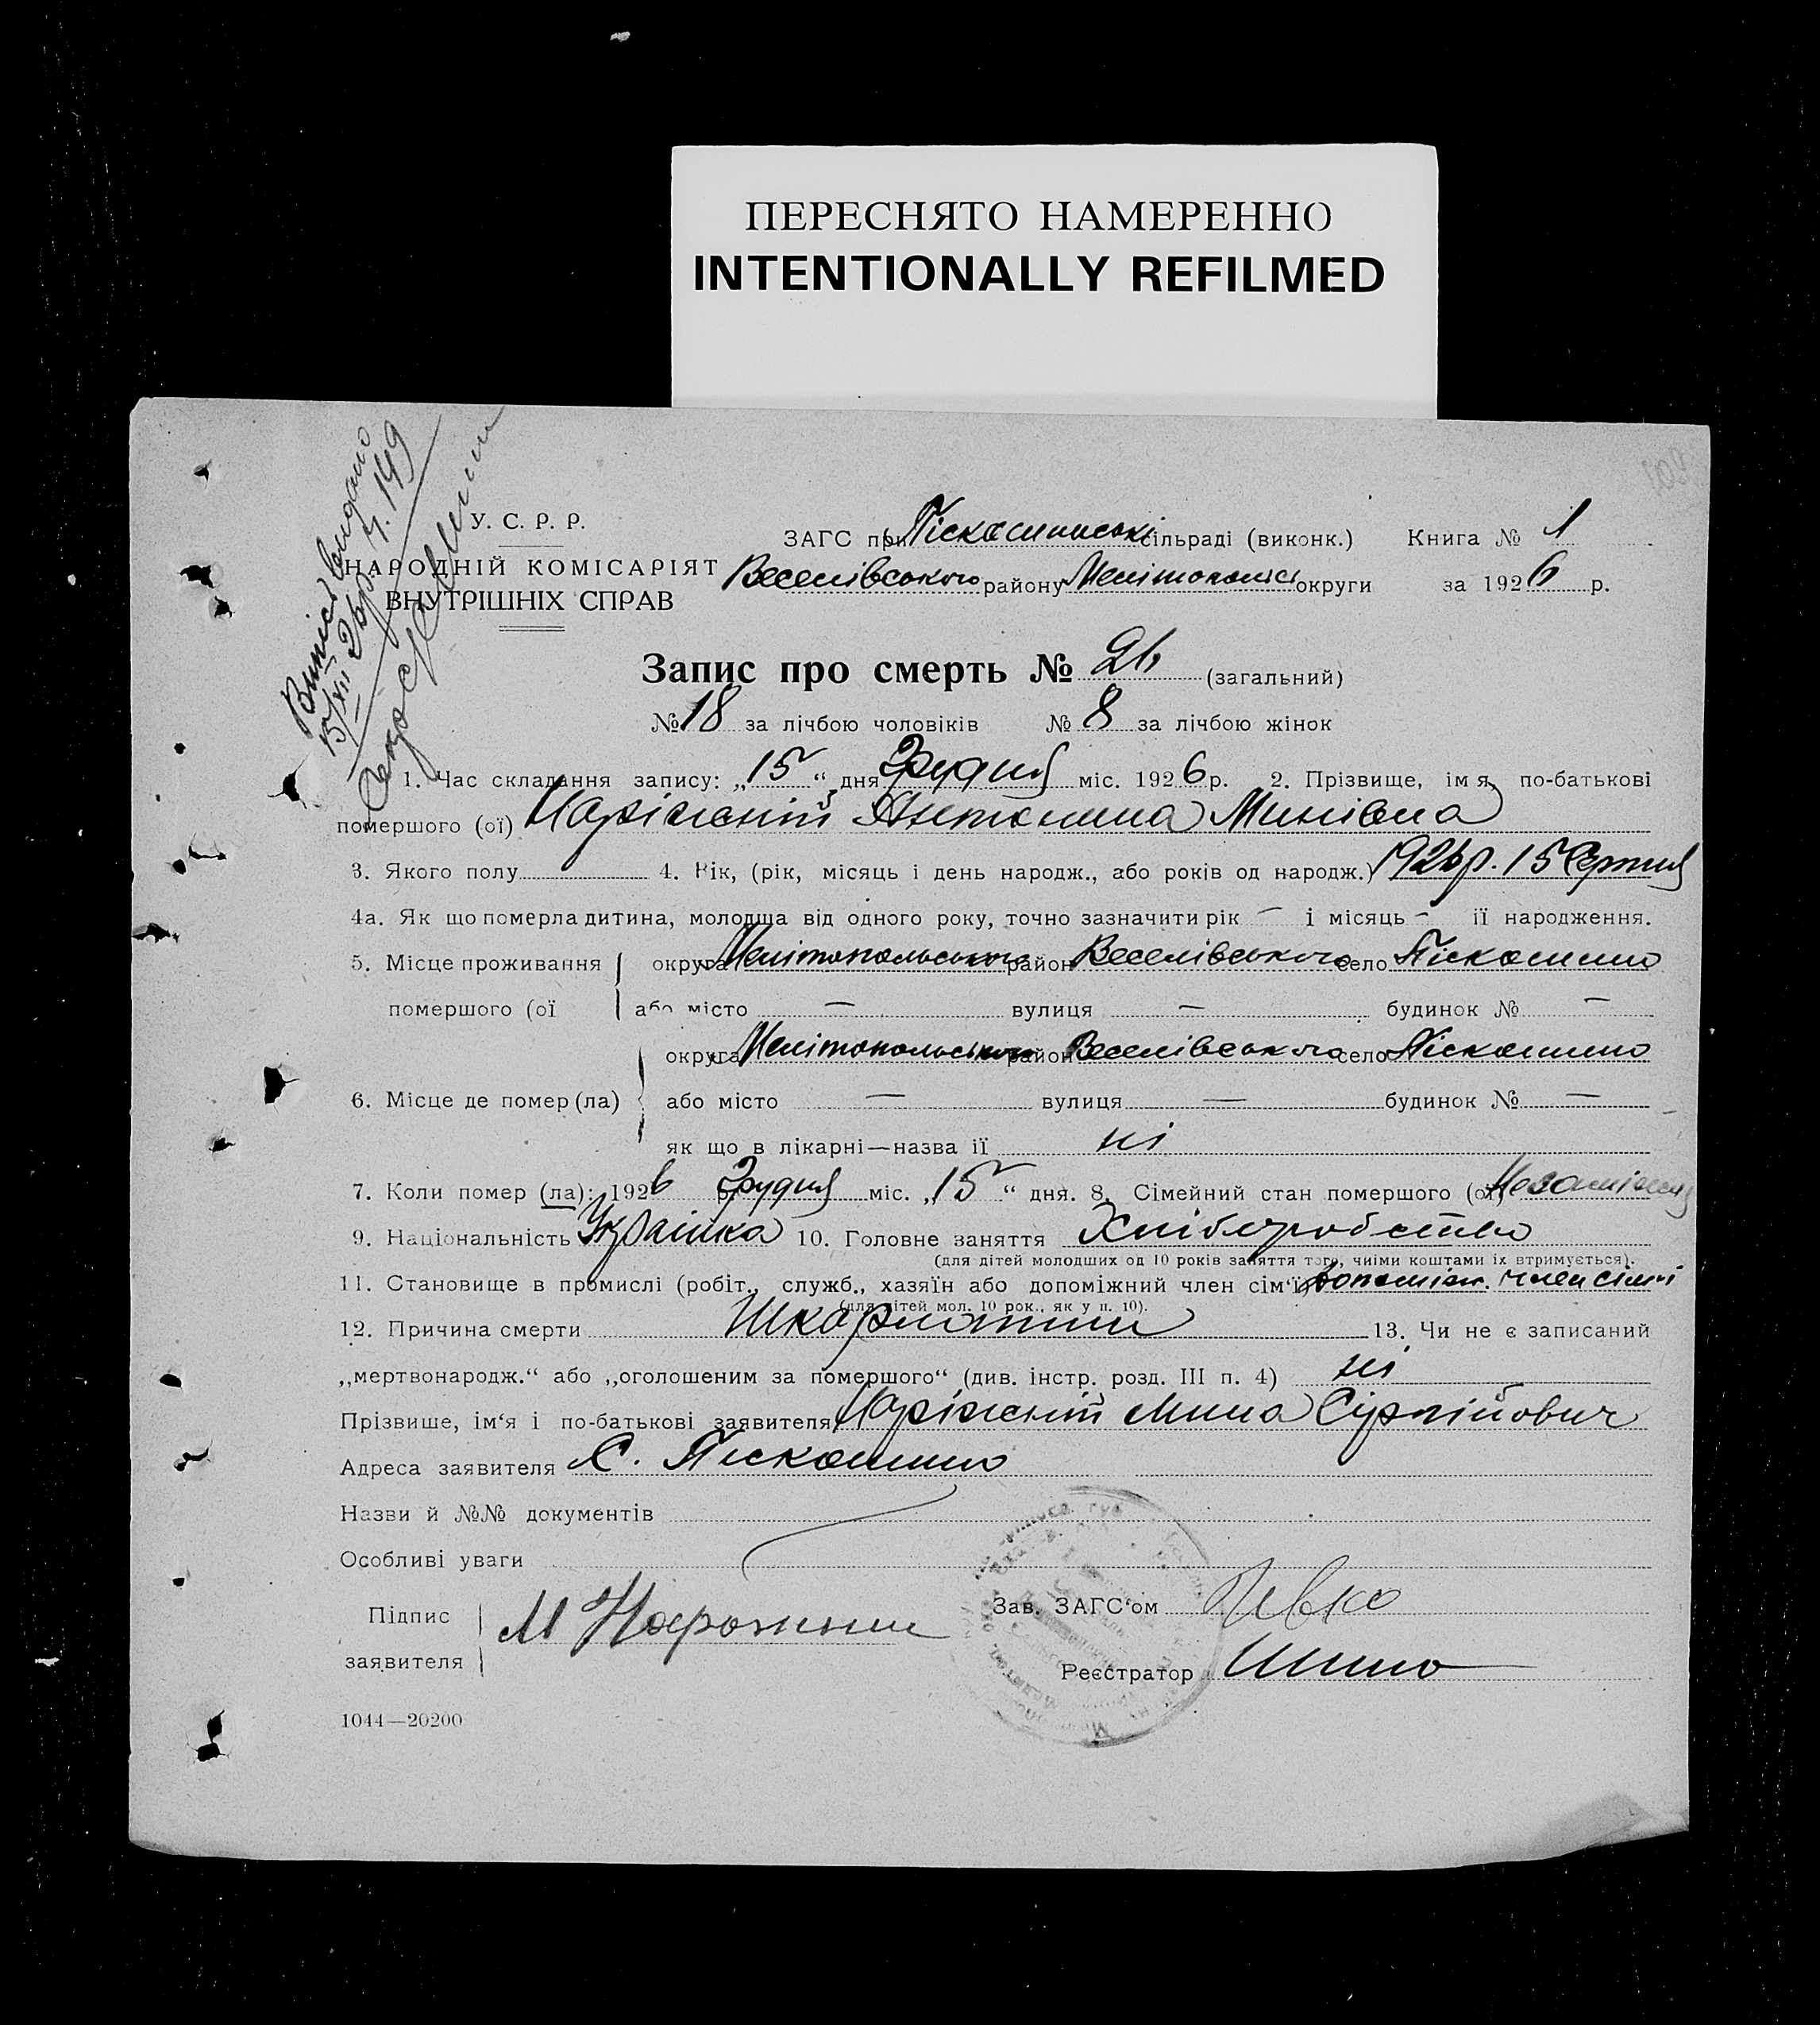 ПЕРЕСНЯТО НАМЕРЕННО
INTENTIONALLY REFILMED
Випись видано
15/XII 26р. ч. 149
У. С. Р. Р.
НАРОДНІЙ КОМІСАРІЯТ
ВНУТРІШНІХ СПРАВ
ЗАГС при сільраді (виконк.) Книга № 1
Веселівського району Мелітопольс округи за 1926 р.
Запис про смерть № 26 (загальний)
№ 18 за лічбою чоловіків № 8 за лічбою жінок
1. Час складання запису: „15“ дня Грудня міс. 1926 р. 2. Прізвище, імя, по-батькові
помершого (ої) Наріжній Антонина Минівна
3. Якого полу 4. Вік, (рік, місяць і день народж., або років од народж.) 1926р. 15 Серпня
4а. Як що померла дитина, молодща від одного року, точно зазначити рік — і місяць — її народження.
5. Місце проживання округа Мелітопольського район Веселівського село Піскошино
помершого (ої або місто — вулиця — будинок № —
округа Мелітопольського район Веселівського село Піскошино
6. Місце де помер (ла) або місто — вулиця — будинок № —
як що в лікарні—назва її ні
7. Коли помер (ла): 1926 р. Грудня міс. „15“ дня. 8. Сімейний стан помершого (ої) Незаміжня
9. Національність Українка 10. Головне заняття Хліборобство
(для дітей молодших од 10 років заняття того, чиїми коштами їх втримується).
11. Становище в промислі (робіт., служб., хазяїн або допоміжний член сім'ї) допоміж. член сімї
(для дітей мол. 10 рок., як у п. 10).
12. Причина смерти Шкарлятини 13. Чи не є записаний
„мертвонародж.“ або „оголошеним за помершого“ (див. інстр. розд. III п. 4) ні
Прізвише, ім‘я і по-батькові заявителя Наріжній Мина Сергійович
Адреса заявителя С. Пископшино
Назви й №№ документів
Особливі уваги
Підпис М Нарожний Зав. ЗАГС‘ом
заявителя Реєстратор
1044—20200